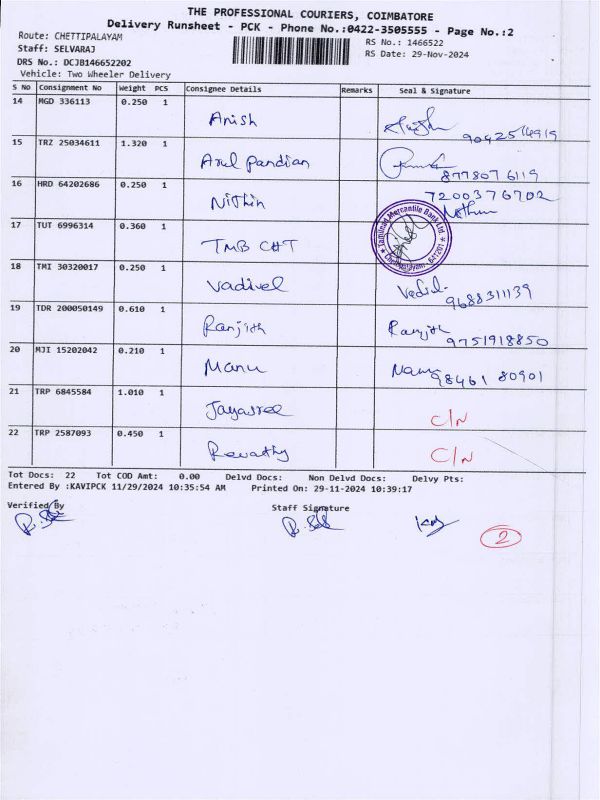 THE PROFESSIONAL COURIERS, COIMBATORE
Delivery Runsheet - PCK - Phone No.:0422-3505555 - Page No.:2
Route: CHETTIPALAYAM RS No.: 1466522
Staff: SELVARAJ RS Date: 29-Nov-2024
DRS No.: DCJB146652202
Vehicle: Two Wheeler Delivery
S No Consignment No Weight PCS Consignee Details Remarks Seal & Signature
14 MGD 336113 0.250 1 Anish 9042514919
15 TRZ 25034611 1.320 1 Arul Pandian 877807 6119
16 HRD 64202686 0.250 1 Nithin 7200376702 Nithin
17 TUT 6996314 0.360 1 TMB CHT Tamilnad Mercantile Bank Ltd. Chettipalayam - 641201
18 TMI 30320017 0.250 1 Vadivel 9688311139
19 TDR 200050149 0.610 1 Ranjith Ranjith 9751918850
20 MJI 15202042 0.210 1 Manu 98461 80901
21 TRP 6845584 1.010 1 Jayasree C/N
22 TRP 2587093 0.450 1 Revathy C/N
Tot Docs: 22 Tot COD Amt: 0.00 Delvd Docs: Non Delvd Docs: Delvy Pts:
Entered By :KAVIPCK 11/29/2024 10:35:54 AM Printed On: 29-11-2024 10:39:17
Verified By Staff Signature
2